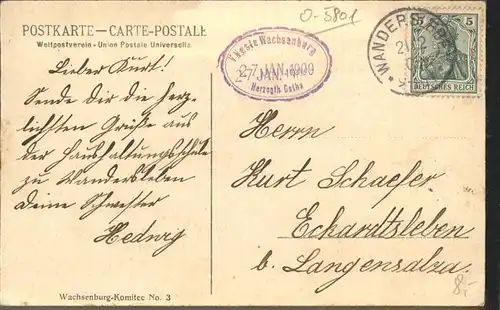 O-5801
POSTKARTE – CARTE-POSTALE
Weltpostverein - Union Postale Universelle
Lieber Kurt!
Sende Dir die herz-
lichsten Grüße aus
der Haushaltungsschule
zu Wandersleben
Deine Schwester
Hedwig
Wachsenburg-Komitee No. 3
Veste Wachsenburg
27 JAN. 1909
Herzogth. Gotha
WANDERSLEBEN
5 5
DEUTSCHES REICH
Herrn
Kurt Schaefer
Eckardtsleben
b. Langensalza.
8,-